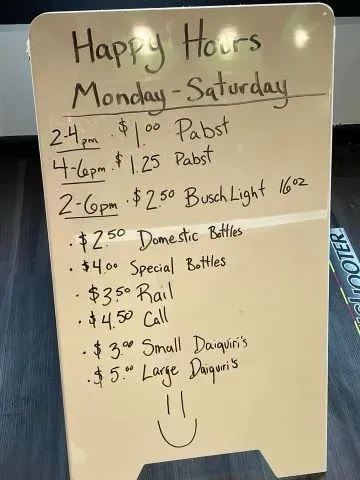 Happy Hours
Monday - Saturday
2-4pm · $1.00 Pabst
4-6pm · $1.25 Pabst
2-6pm · $2.50 Busch Light 16oz
· $2.50 Domestic Bottles
· $4.00 Special Bottles
· $3.50 Rail
· $4.50 Call
· $3.00 Small Daiquiri's
· $5.00 Large Daiquiri's